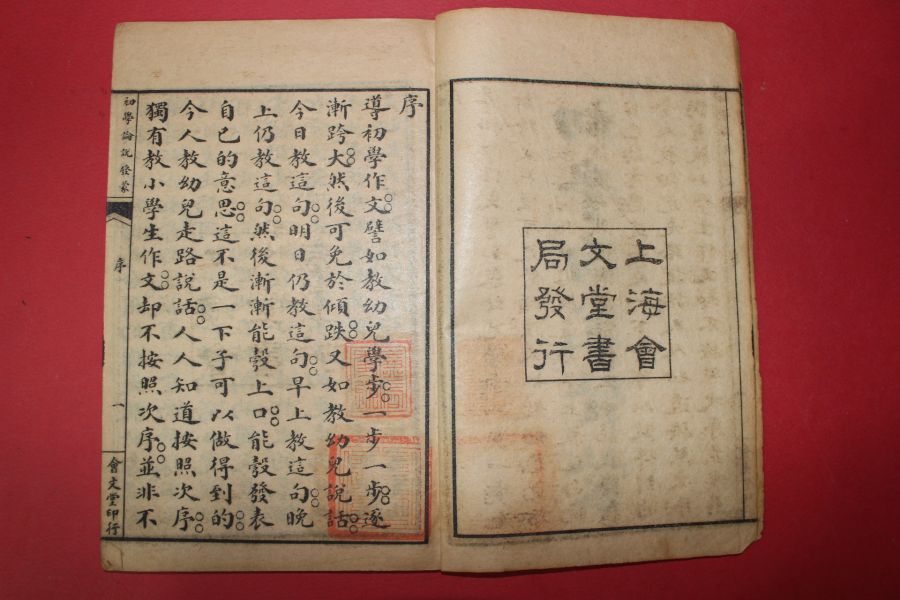 上海會
文堂書
局發行
序
導初學作文。譬如教幼兒學步。一步一步。逐
漸跨大。然後可免於傾跌。又如教幼兒說話。
今日教這句。明日仍教這句。早上教這句。晚
上仍教這句。然後漸漸能彀上口。能彀發表
自已的意思。這不是一下子可以做得到的。
今人教幼兒走路說話。人人知道按照次序。
獨有教小學生作文。却不按照次序。並非不
初學論說發蒙
序
一
會文堂印行